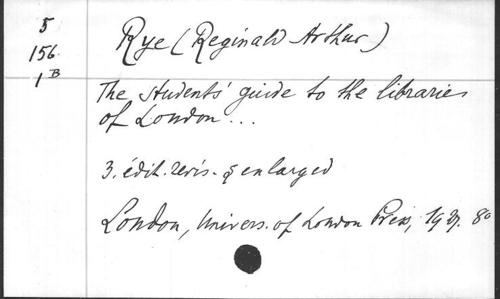 5
156
1 B
Rye (Reginald Arthur)
The students' guide to the libraries
of London ...
3. édit. revis. & enlarged
London, Univers. of London Press, 1927. 8º